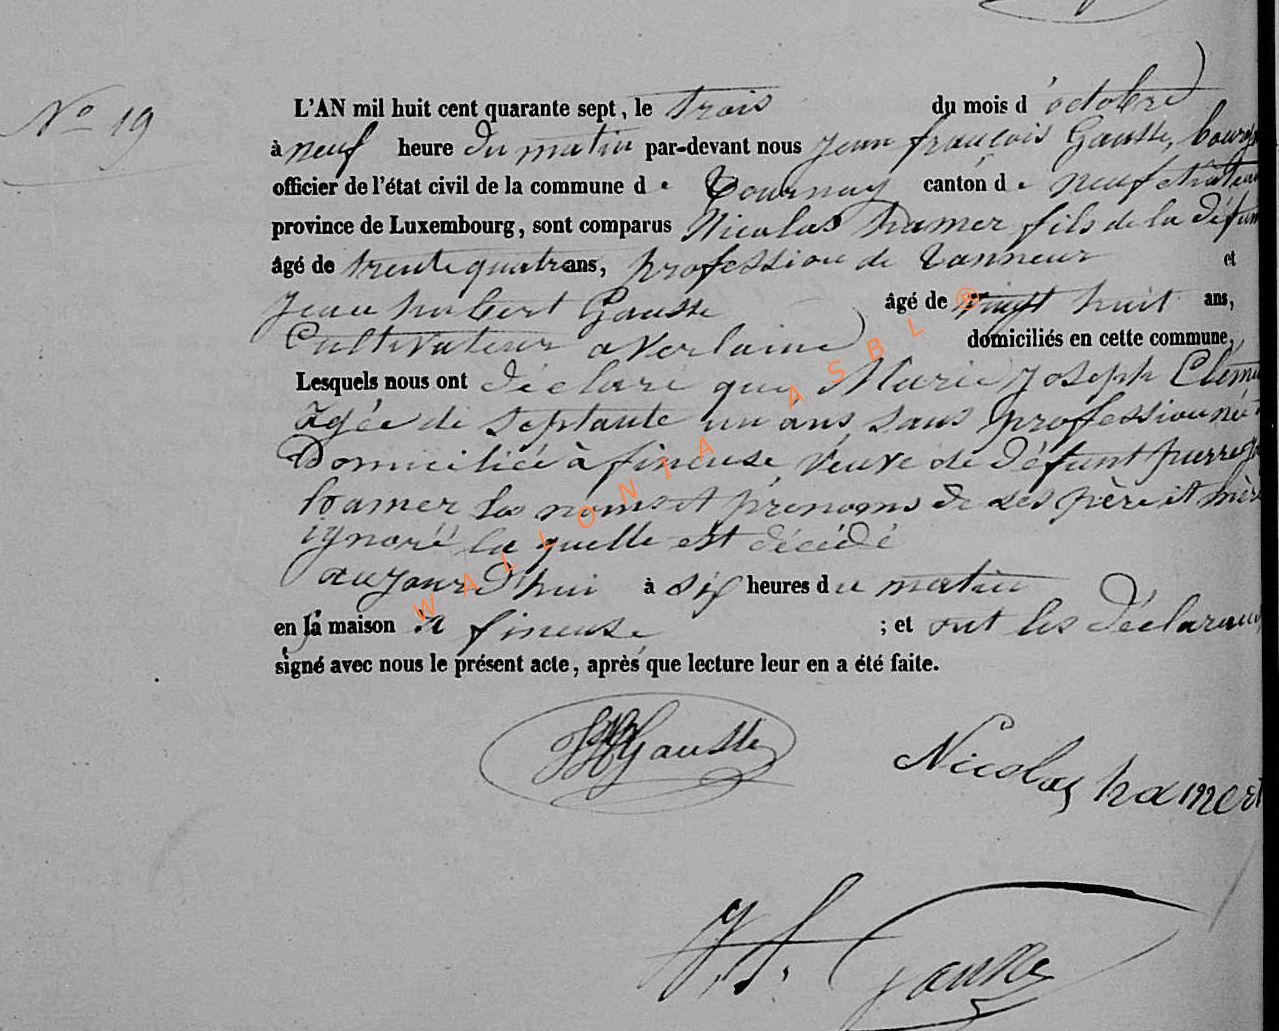 No 19
L'AN mil huit cent quarante sept, le trois du mois d'octobre
à neuf heure du matin par-devant nous jean françois Gausse, bourg
officier de l'état civil de la commune de Tournay canton de neufchateau
province de Luxembourg, sont comparus Nicolas hamer fils de la défun
âgé de trente quatre ans, profession de tanneur et
jean hubert Gausse âgé de vingt huit ans,
Cultivateur a verlaine domiciliés en cette commune,
Lesquels nous ont déclaré que Marie joseph Clém
agée de septante un ans sans profession née
Domiciliée à fineuse veuve de défunt pierre
hamer les noms et prénoms de ses père et mère
ignoré la quelle est décédé
aujourd'hui à six heures du matin
en la maison à fineuse ; et ont les déclarans
signé avec nous le présent acte, après que lecture leur en a été faite.
Gausse
Nicolas hamert
J.f. Gausse
WALLONIA ASBL ®